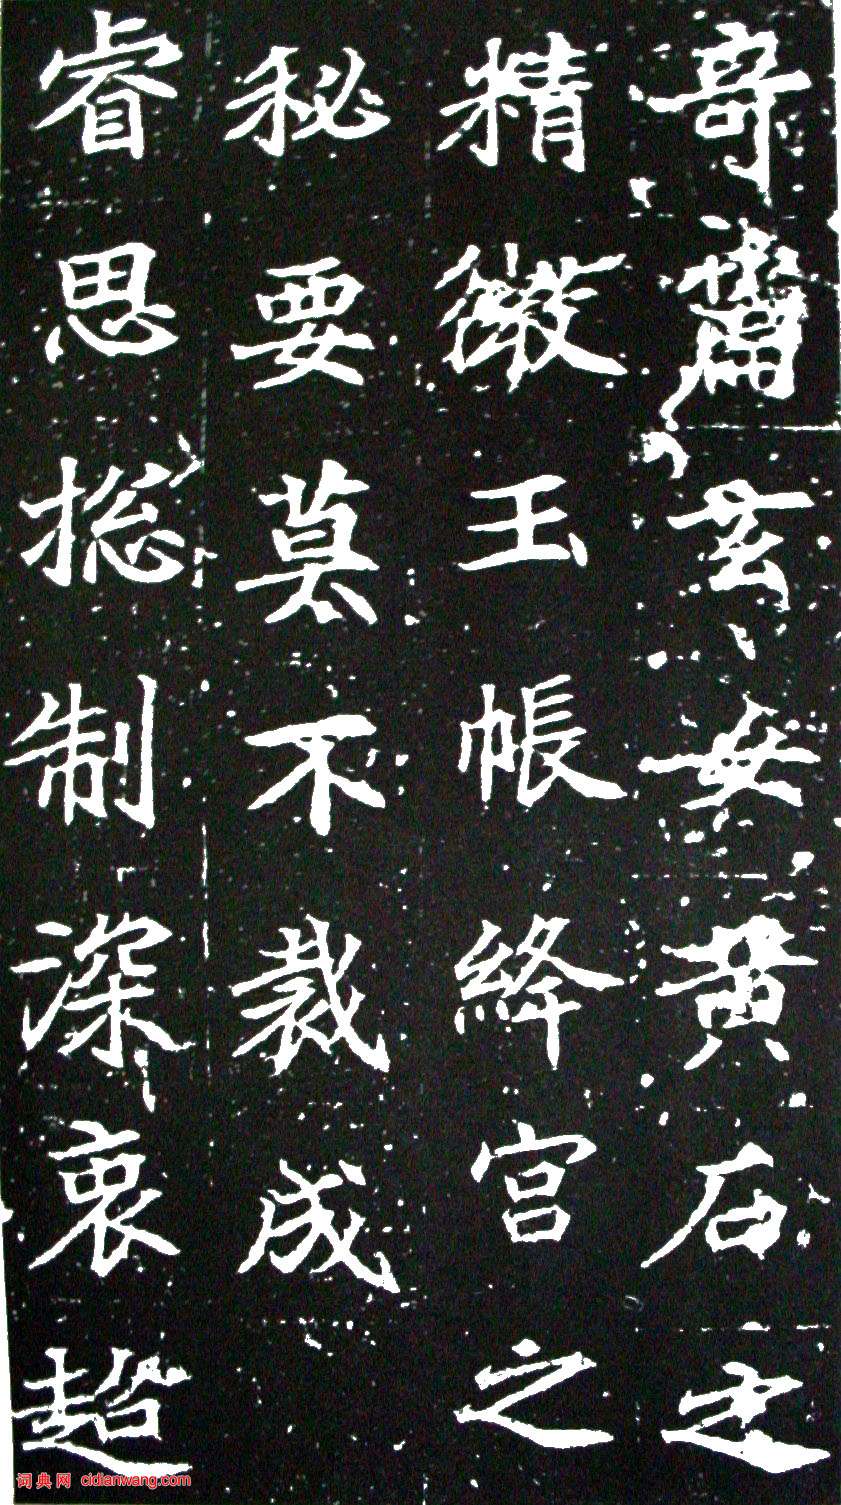 奇玄女黄石之
精微玉帳絳宫之
秘要莫不裁成
睿思揔制深衷超
词典网 cidianwang.com